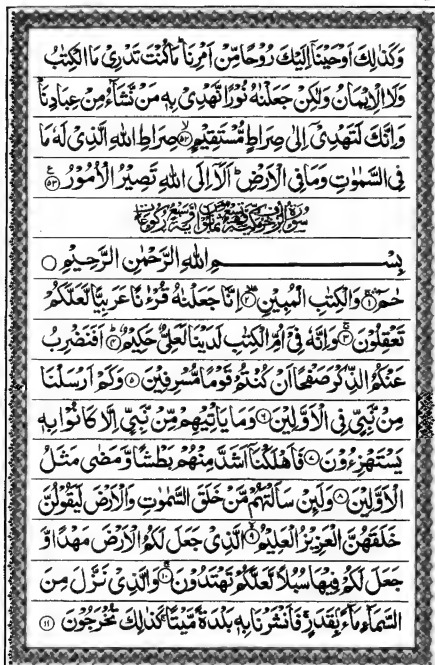 وَكَذٰلِكَ اَوْحَيْنَاۤ اِلَيْكَ رُوْحًا مِّنْ اَمْرِنَا ؕ مَا كُنْتَ تَدْرِىْ مَا الْكِتٰبُ
وَلَا الْاِيْمَانُ وَلٰكِنْ جَعَلْنٰهُ نُوْرًا نَّهْدِىْ بِهٖ مَنْ نَّشَآءُ مِنْ عِبَادِنَا ؕ
وَاِنَّكَ لَتَهْدِىْۤ اِلٰى صِرَاطٍ مُّسْتَقِيْمٍ ۙ﴿۵۲﴾ صِرَاطِ اللّٰهِ الَّذِىْ لَهٗ مَا
فِى السَّمٰوٰتِ وَمَا فِى الْاَرْضِ ؕ اَلَاۤ اِلَى اللّٰهِ تَصِيْرُ الْاُمُوْرُ ﴿۵۳﴾
سُوْرَةُ الزُّخْرُفِ مَكِّيَّةٌ
بِسْمِ اللّٰهِ الرَّحْمٰنِ الرَّحِيْمِ
حٰمٓ ﴿۱﴾ وَالْكِتٰبِ الْمُبِيْنِ ﴿۲﴾ اِنَّا جَعَلْنٰهُ قُرْءٰنًا عَرَبِيًّا لَّعَلَّكُمْ
تَعْقِلُوْنَ ﴿۳﴾ وَاِنَّهٗ فِىْۤ اُمِّ الْكِتٰبِ لَدَيْنَا لَعَلِىٌّ حَكِيْمٌ ﴿۴﴾ اَفَنَضْرِبُ
عَنْكُمُ الذِّكْرَ صَفْحًا اَنْ كُنْتُمْ قَوْمًا مُّسْرِفِيْنَ ﴿۵﴾ وَكَمْ اَرْسَلْنَا
مِنْ نَّبِىٍّ فِى الْاَوَّلِيْنَ ﴿۶﴾ وَمَا يَاْتِيْهِمْ مِّنْ نَّبِىٍّ اِلَّا كَانُوْا بِهٖ
يَسْتَهْزِءُوْنَ ﴿۷﴾ فَاَهْلَكْنَاۤ اَشَدَّ مِنْهُمْ بَطْشًا وَّمَضٰى مَثَلُ
الْاَوَّلِيْنَ ﴿۸﴾ وَلَئِنْ سَاَلْتَهُمْ مَّنْ خَلَقَ السَّمٰوٰتِ وَالْاَرْضَ لَيَقُوْلُنَّ
خَلَقَهُنَّ الْعَزِيْزُ الْعَلِيْمُ ﴿۹﴾ الَّذِىْ جَعَلَ لَكُمُ الْاَرْضَ مَهْدًا وَّ
جَعَلَ لَكُمْ فِيْهَا سُبُلًا لَّعَلَّكُمْ تَهْتَدُوْنَ ﴿۱۰﴾ وَالَّذِىْ نَزَّلَ مِنَ
السَّمَآءِ مَآءًۢ بِقَدَرٍ ۚ فَاَنْشَرْنَا بِهٖ بَلْدَةً مَّيْتًا ۚ كَذٰلِكَ تُخْرَجُوْنَ ﴿۱۱﴾